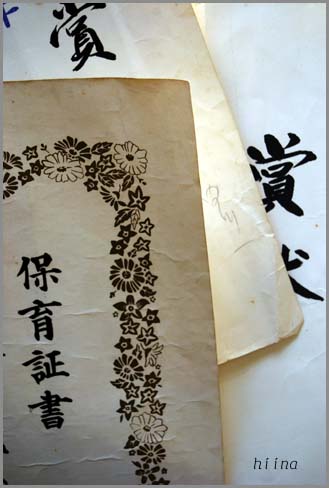 賞
賞状
保育証書
hiina